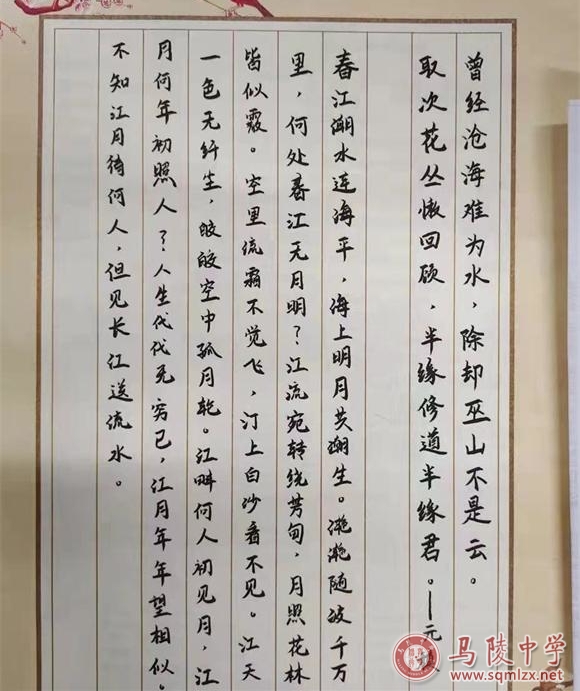 曾经沧海难为水，除却巫山不是云。
取次花丛懒回顾，半缘修道半缘君。—元
春江潮水连海平，海上明月共潮生。滟滟随波千万
里，何处春江无月明？江流宛转绕芳甸，月照花林
皆似霰。空里流霜不觉飞，汀上白沙看不见。江天
一色无纤尘，皎皎空中孤月轮。江畔何人初见月，江
月何年初照人？人生代代无穷已，江月年年望相似。
不知江月待何人，但见长江送流水。
马陵中学
www.sqmlzx.net